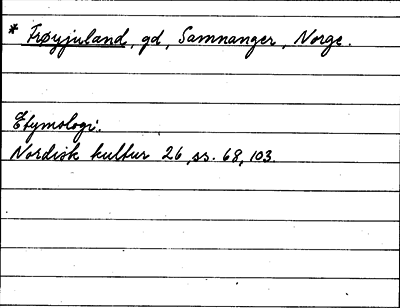 * Frøyjuland, gd, Samnanger, Norge.
Etymologi.
Nordisk kultur 26, ss. 68, 103.